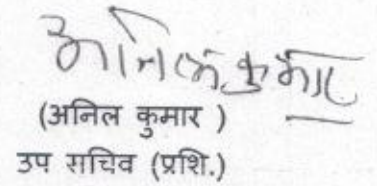 अनिल कुमार
(अनिल कुमार )
उप सचिव (प्रशि.)